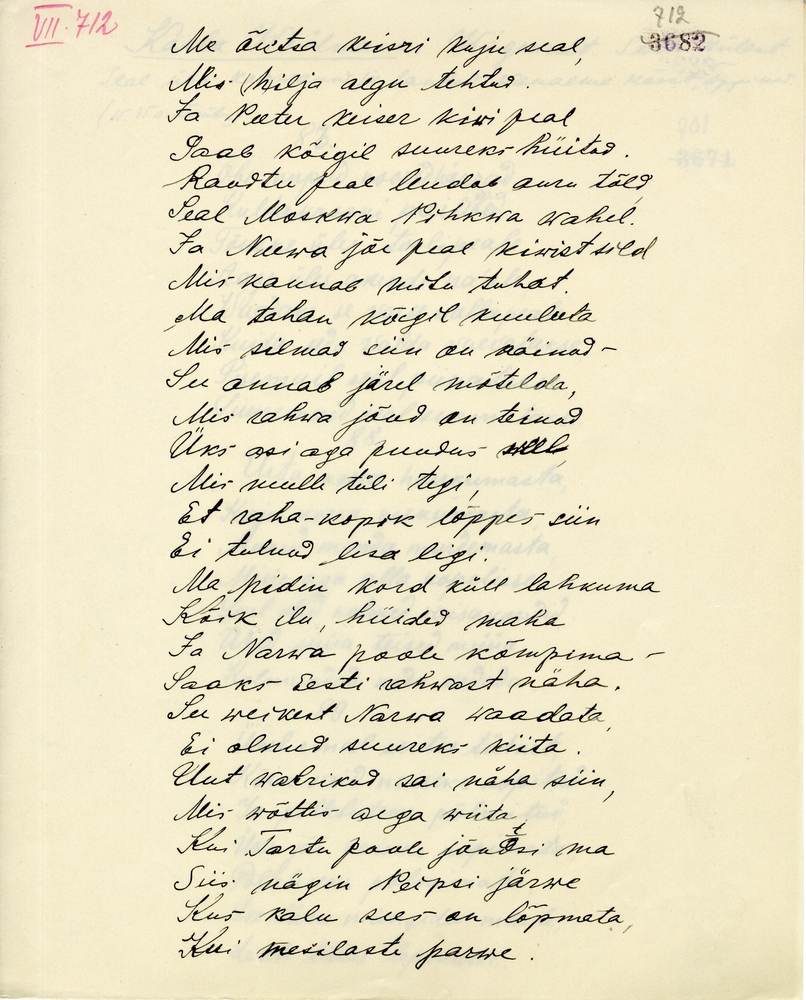 VII. 712
712
3682
Me õetsa keisri kuju seal,
Mis hilja aegu tehtud.
Ja Peeter keiser kiwi peal
Saab kõigil suureks hüitud.
Raudtee peal lendab auru tõld,
Seal Moskwa Pihkwa wahel.
Ja Neewa jõe peal kiwist sild
Mis kannab mitu tuhat.
Ma tahan kõigil kuuluta
Mis silmad siin on näinud-
See annab järel mõtelda,
Mis rahwa jõud on teinud
Üks asi aga puudus
Mis mulle tüli tegi,
Et raha-kopik lõppes siin
Ei tulnud lisa ligi.
Ma pidin kord küll lahkuma
Kõik ilu, hüided maha
Ja Narwa poole kõmpima -
Saaks Eesti rahwast näha.
See weikest Narwa waadata,
Ei olnud suureks kiita.
Uut wabrikud sai näha siin,
Mis wõttis aega wiita,
Kui Tartu poole jõudsi ma
Siis nägin Peipsi järwe
Kus kalu sees on lõpmata,
Kui mesilaste parwe.